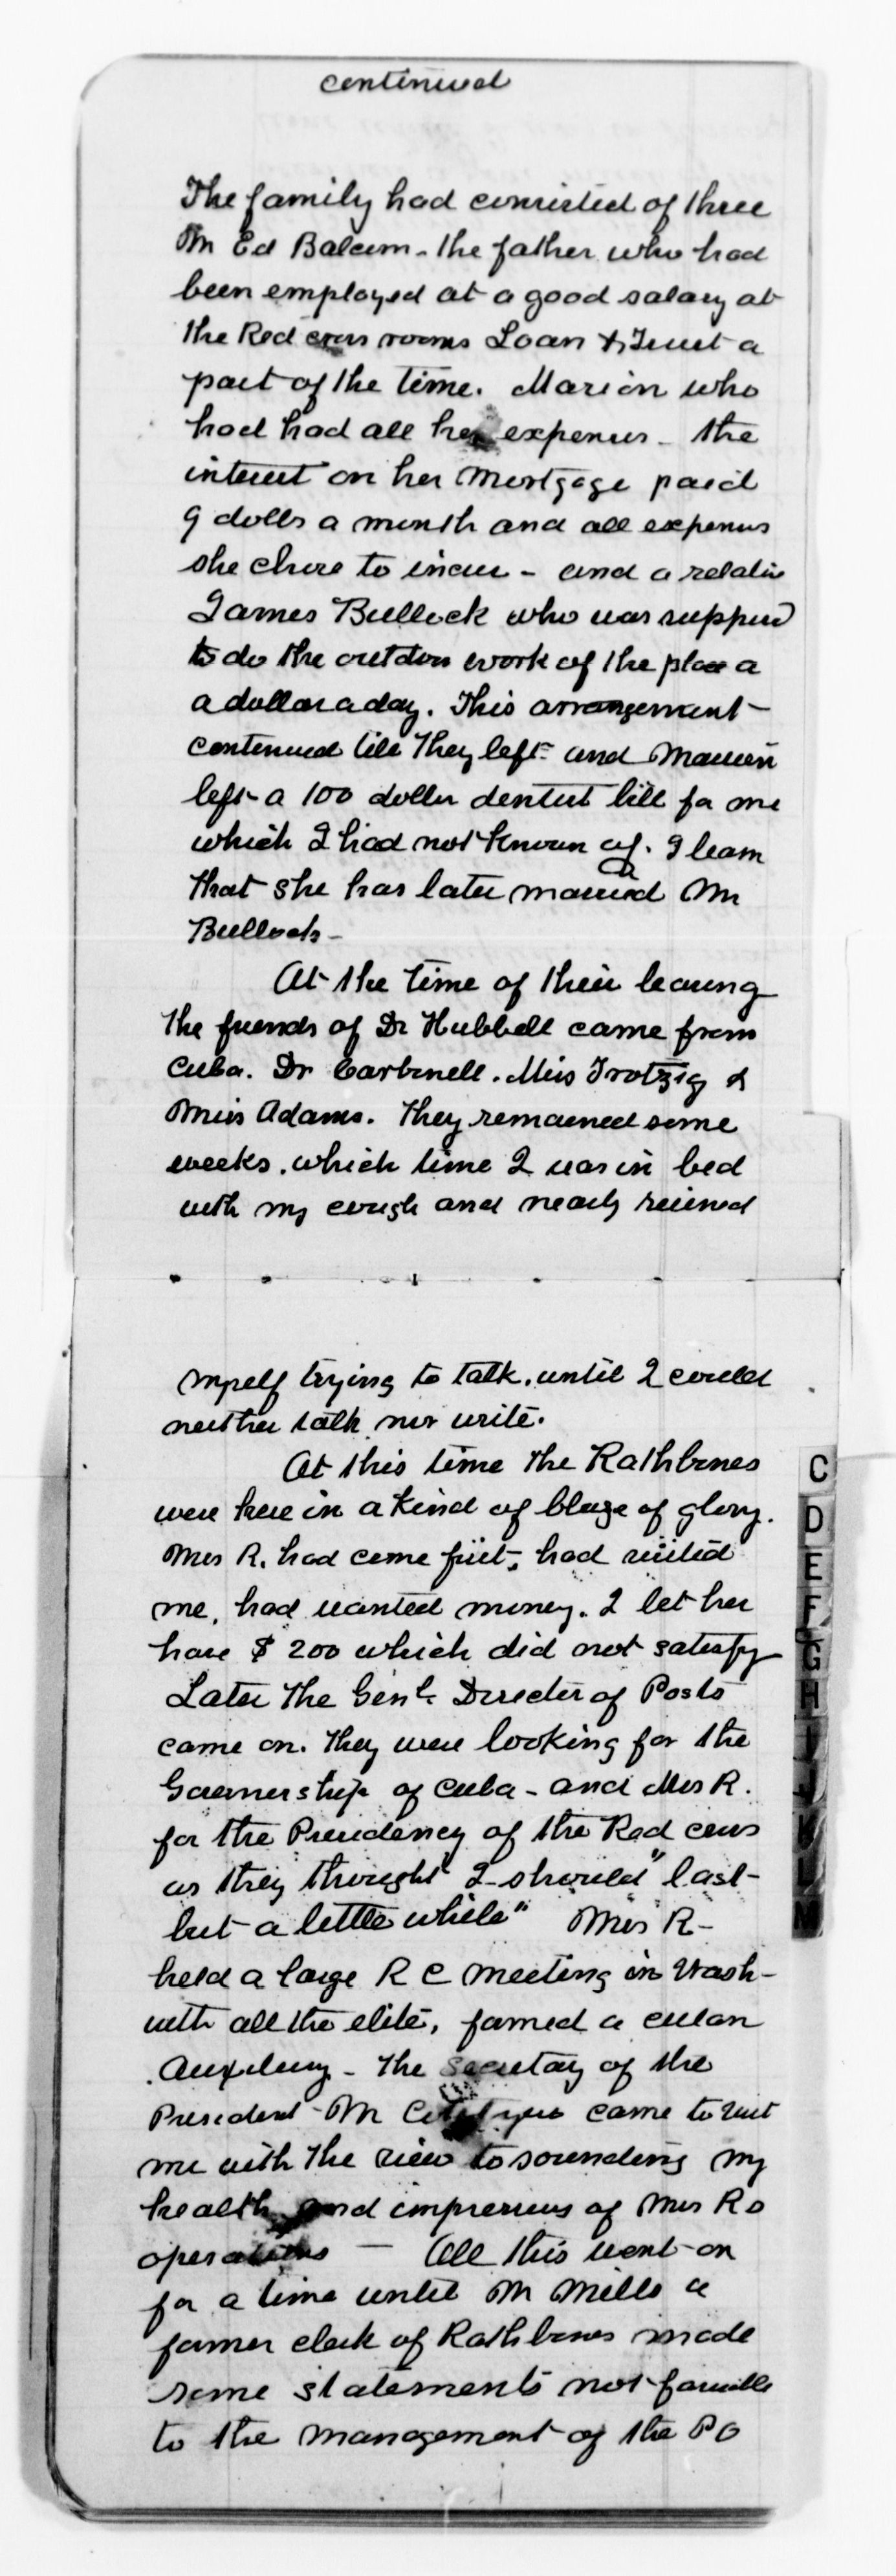 continued
The family had consisted of three
Mr Ed Balcom - the father who had
been employed at a good salary at
the Red cross rooms Loan & Trust a
part of the time. Marion who
had had all her expenses - the
interest on her Mortgage paid
9 dolls a month and all expenses
she chose to incur - and a relative
James Bullock who was supposed
to do the outdoor work of the place a
a dollar a day. This arrangement
continued till they left and Marion
left a 100 doller dentist bill for me
which I had not known of. I learn
that she has later married Mr
Bullock -
At the time of their leaving
the friends of Dr Hubbell came from
Cuba. Dr Carbonell. Miss Trotzig &
Miss Adams. They remained some
weeks. which time I was in bed
with my cough and nearly ruined
myself trying to talk. until I could
neither talk nor write.
At this time the Rathbones
were here in a kind of blaze of glory.
Mrs R. had come first, had visited
me, had wanted money. I let her
have $ 200 which did not satisfy
Later the Genl. Director of Posts
came on. They were looking for the
Governership of Cuba - and Mrs R.
for the Presidency of the Red cross
as they thought I should "last
but a little while" Mrs R -
held a large R C meeting in Wash -
with all the elite, formed a cuban
Auxiluary - The Secretary of the
President Mr came to visit
me with the view to sounding my
health and impressions of Mrs Rs
operations — All this went on
for a time until Mr Mills a
former clerk of Rathbones made
some statements not favorable
to the management of the P O
C
D
E
F
G
H
I
J
K
L
M